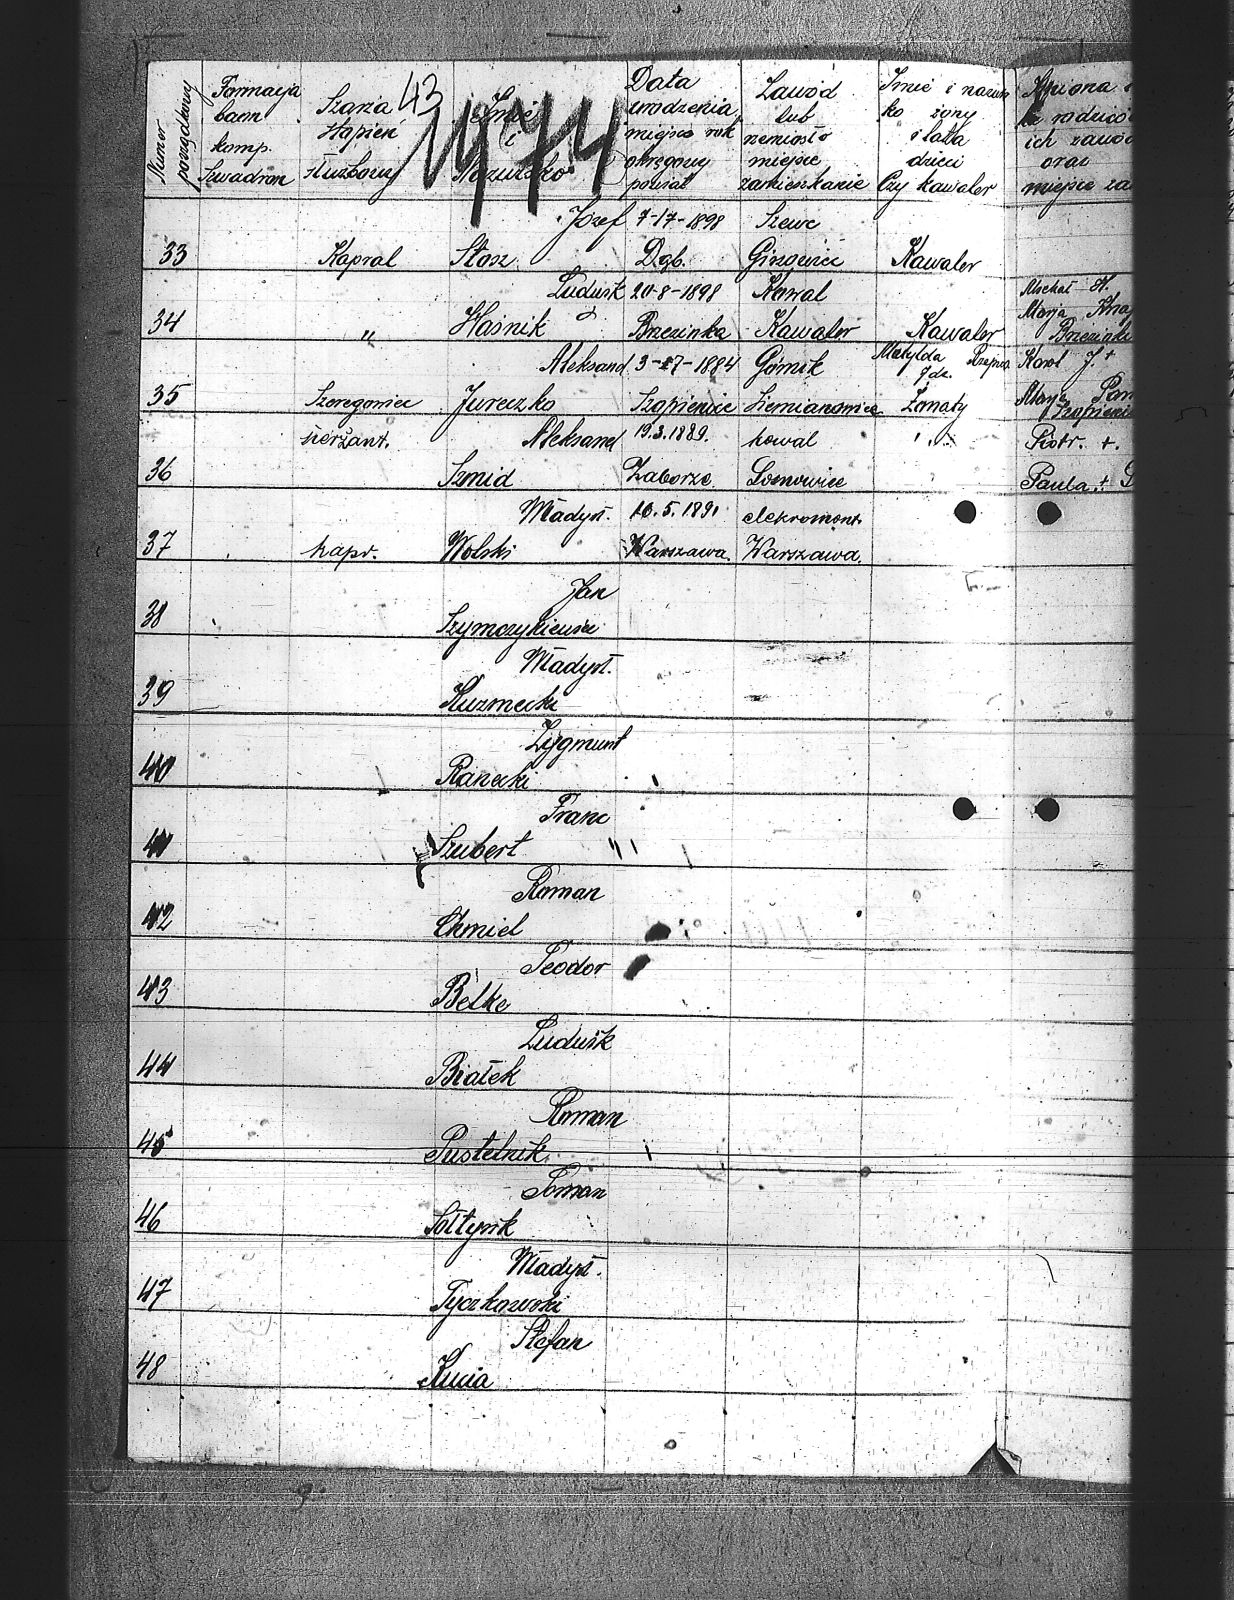 Numer porządkowy
Formacja baon komp. Szwadron
Szarża stopień służbowy
43
1974
Imię i Nazwisko
Data urodzenia, miejsce rok okręgowy powiat
Zawód lub rzemiosło miejsce zamieszkanie
Imię i nazwisko żony i lata dzieci Czy kawaler
ich
oraz
miejsce za
Józef 7-17-1898 Szewc
33 Kapral Stosz Dgb. Giszowiec Kawaler
Ludwik 20-8-1898 Kowal Michał H.
34 " Haśnik Brzezinka Kawaler Kawaler Marja Brzezinka
Aleksand 3-27-1884 Górnik Matylda Rzepca Karol J. +
35 Szeregowiec Jureczko Szopienice Siemianowice Żonaty Marja Szopienice
sierżant. Aleksand 19.3.1889. kowal Piotr. +.
36 Szmid Zaborze Sosnowice Paula +
Władysł. 10.5.1891 elekromont.
37 kapr. Wolski Warszawa. Warszawa.
Jan
38 Szymczykiewicz
Władysł.
39 Kuzmecki
Zygmunt
40 Ranecki
Franc
41 Szubert
Roman
42 Chmiel
Teodor
43 Belke
Ludwik
44 Białek
Roman
45 Pustelnik
Roman
46 Sołtysik
Władysł.
47 Tyczkowski
Stefan
48 Kucia